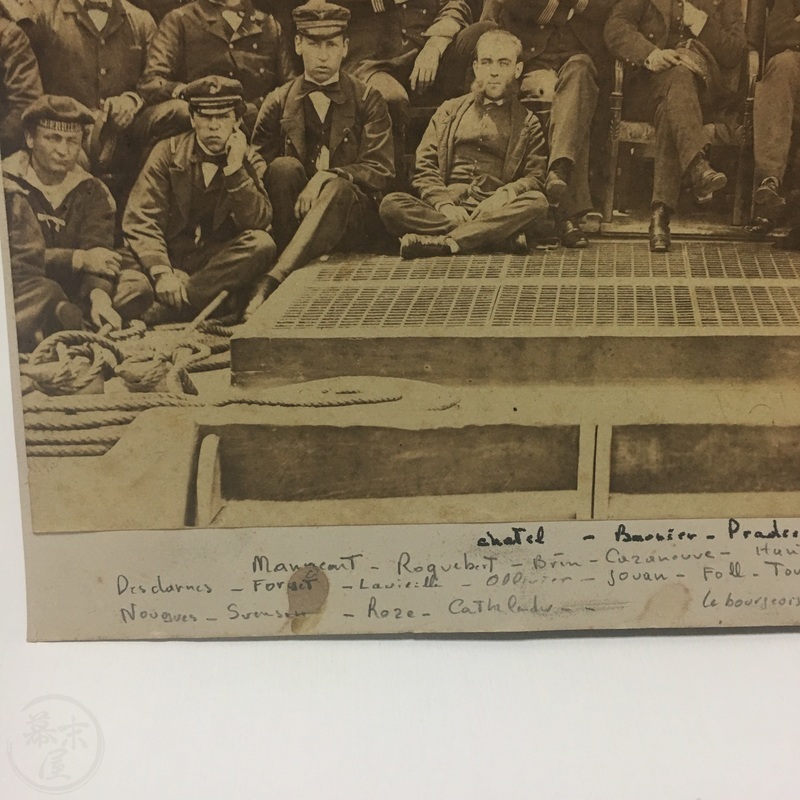 chatel - Barnier - Prade
Manneart - Roquebert - Brin - Cazaneuve - Huni
Desclarnes - Forget - Lavieille - Ollivier - Jouan - Foll - Tou
Nougues - Svensen - Roze - - - Le bourgeois
幕末
屋